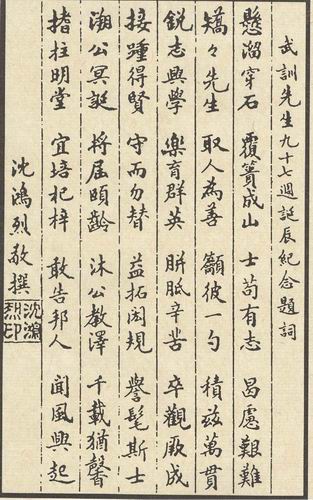 武訓先生九十七週誕辰紀念題詞
懸溜穿石 覆簣成山 士苟有志 曷慮艱難
矯々先生 取人為善 籲彼一勺 積茲萬貫
銳志興學 樂育群英 胼胝辛苦 卒觀厥成
接踵得賢 守而勿替 益拓閎規 譽髦斯士
溯公冥誕 將屆頤齡 沐公教澤 千載猶馨
搘柱明堂 宜培杞梓 敢告邦人 聞風興起
沈鴻烈敬撰
沈鴻烈印